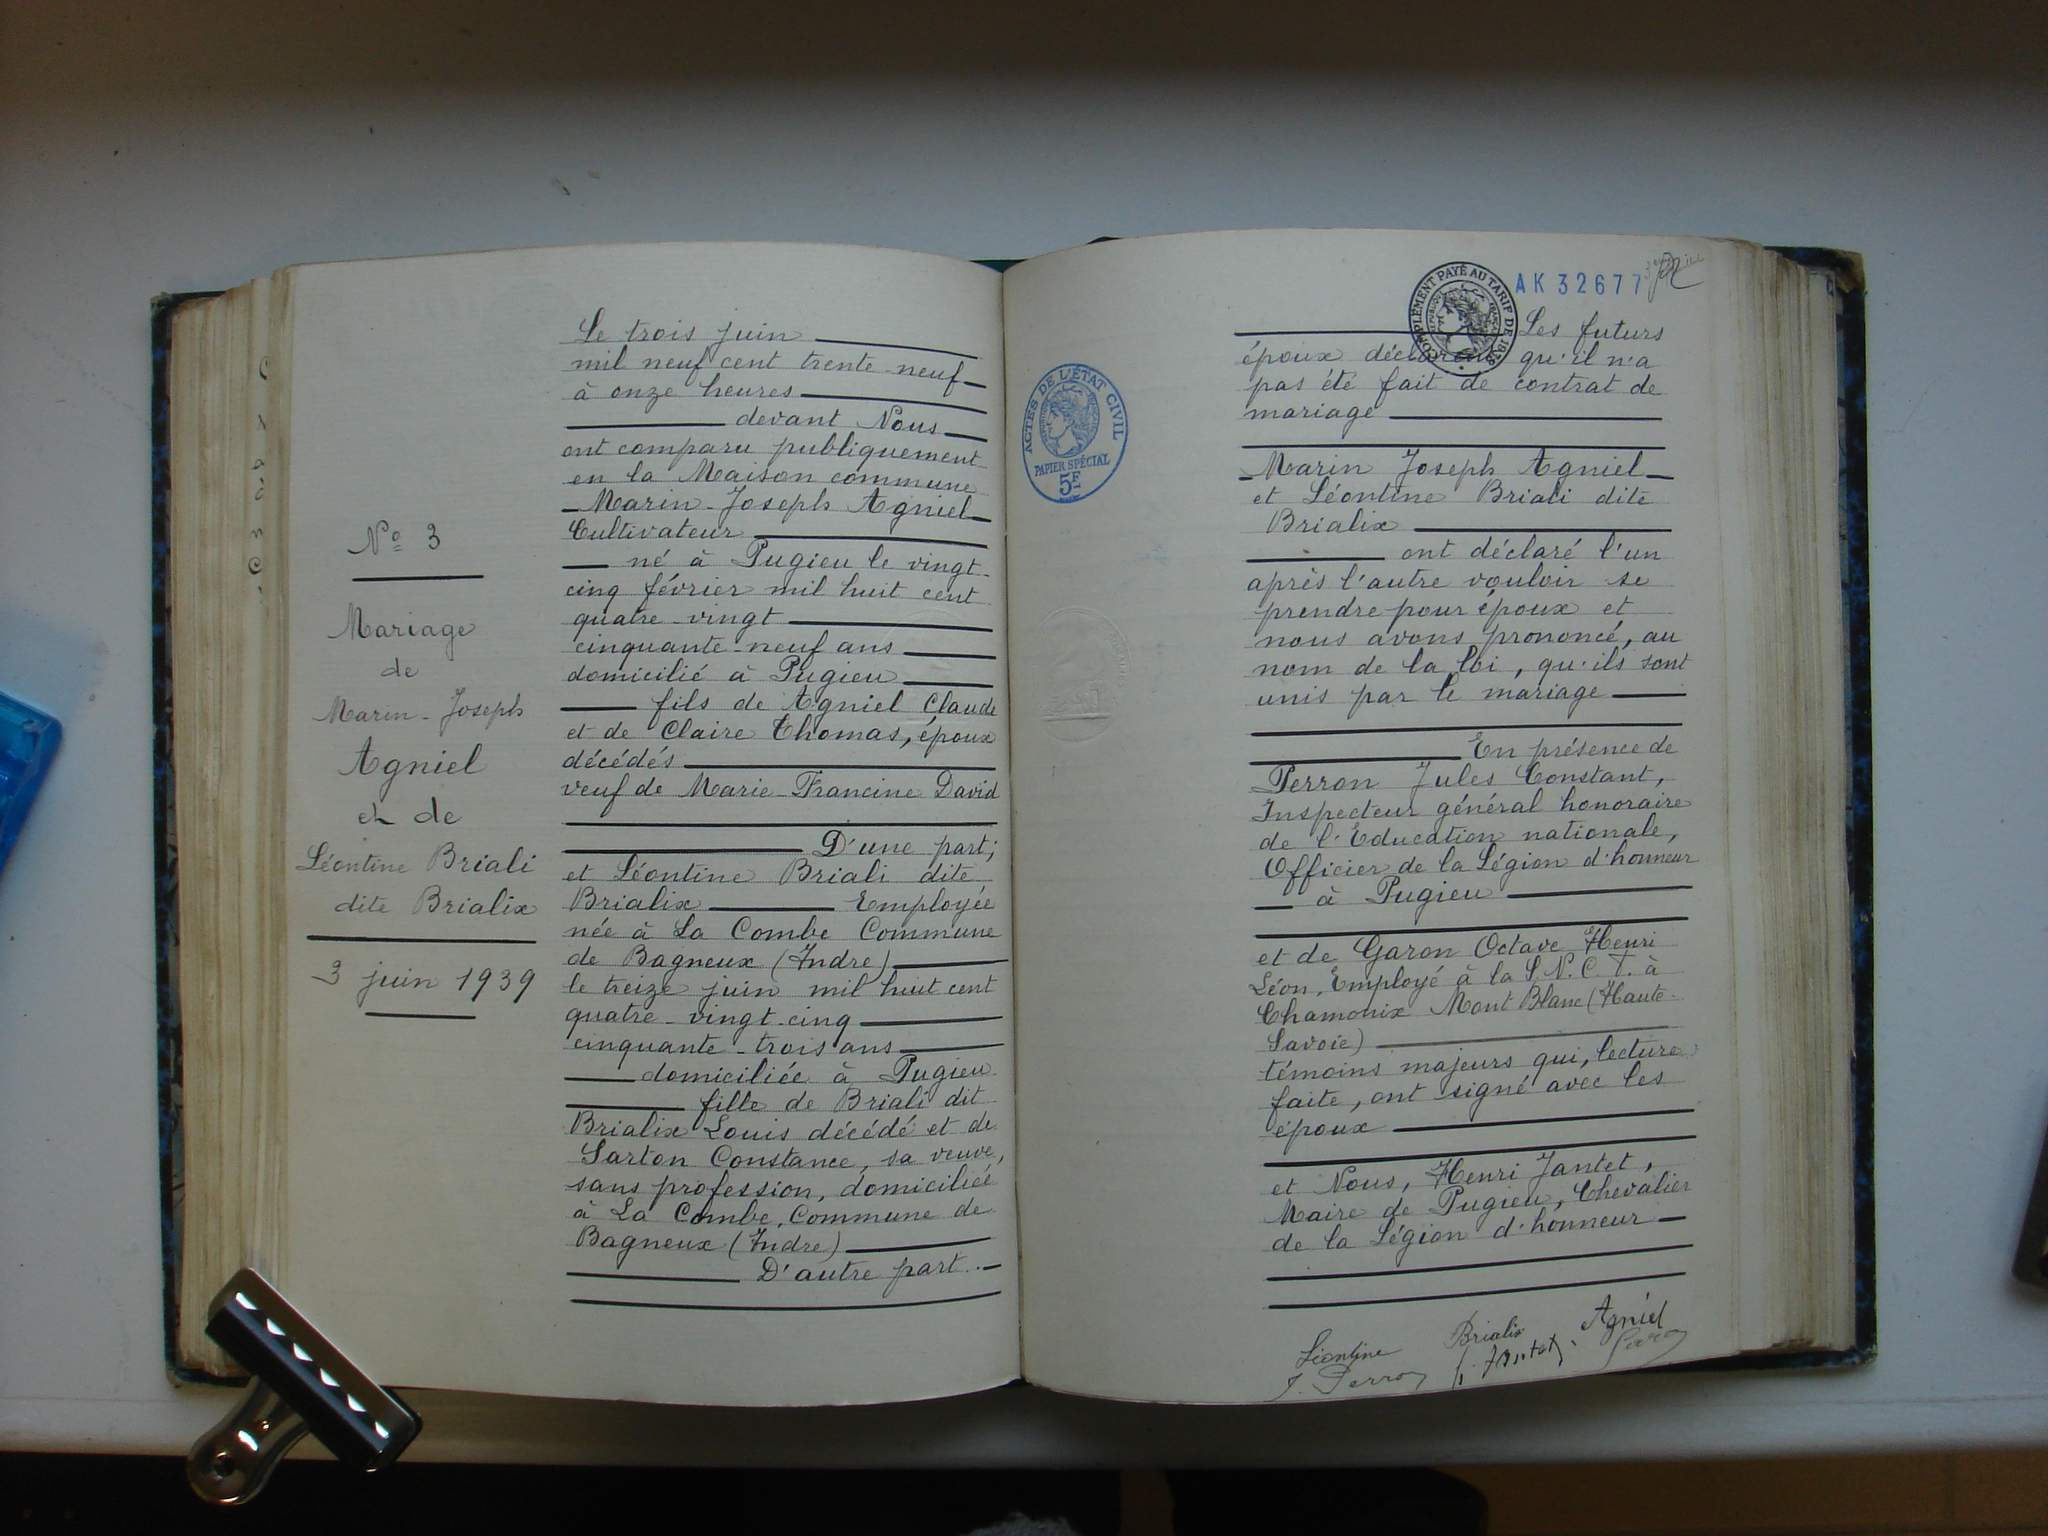 Nº 3
Mariage
de
Marin-Joseph
Agniel
et de
Léontine Briali
dite Brialix
3 juin 1939
Le trois juin
mil neuf cent trente-neuf
à onze heures
devant Nous
ont comparu publiquement
en la Maison commune
Marin-Joseph Agniel
Cultivateur
né à Pugieu le vingt-
cinq février mil huit cent
quatre-vingt
cinquante-neuf ans
domicilié à Pugieu
fils de Agniel Claude
et de Claire Thomas, époux
décédés
veuf de Marie-Francine David
D'une part;
et Léontine Briali dite
Brialix Employée
née à La Combe Commune
de Bagneux (Indre)
le treize juin mil huit cent
quatre-vingt-cinq
cinquante-trois ans
domiciliée à Pugieu
fille de Briali dit
Brialix Louis décédé et de
Sarton Constance, sa veuve,
sans profession, domiciliée
à La Combe, Commune de
Bagneux (Indre)
D'autre part.
COMPLÉMENT PAYÉ AU TARIF DE 1938
AK 32677
ACTES DE L'ÉTAT CIVIL
PAPIER SPÉCIAL
5F
Les futurs
époux déclarent qu'il n'a
pas été fait de contrat de
mariage
Marin Joseph Agniel
et Léontine Briali dite
Brialix
ont déclaré l'un
après l'autre vouloir se
prendre pour époux et
nous avons prononcé, au
nom de la loi, qu'ils sont
unis par le mariage
En présence de
Perron Jules Constant,
Inspecteur général honoraire
de l'Education nationale,
Officier de la Légion d'honneur
à Pugieu
et de Garon Octave Henri
Léon, Employé à la S.N.C.F. à
Chamonix Mont Blanc (Haute-
Savoie)
témoins majeurs qui, lecture
faite, ont signé avec les
époux
et Nous, Henri Jantet,
Maire de Pugieu, Chevalier
de la Légion d'honneur
Léontine Brialix Agniel
J. Perron H. Jantet Garon